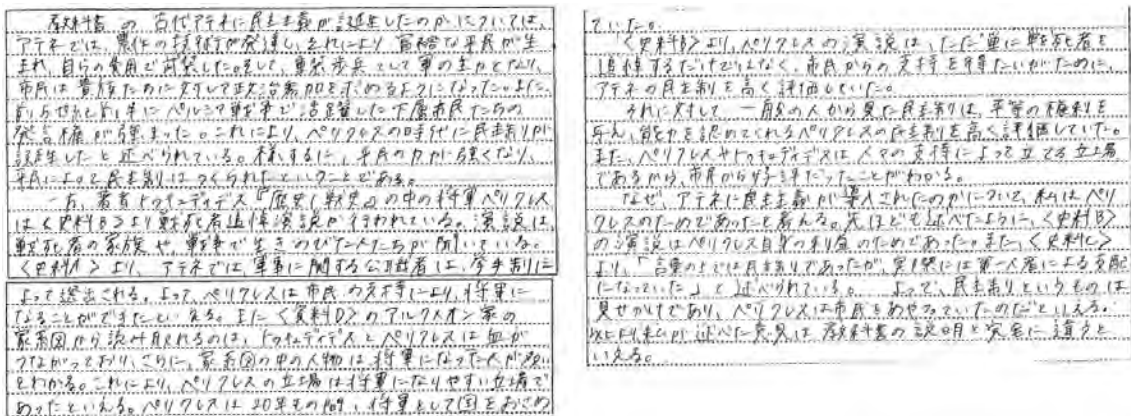 教科書の古代アテネに民主主義が誕生したのかについては、
アテネでは、農作の技術が発達し、それにより富裕な平民が生
まれ、自らの費用で武装した。そして、重装歩兵として軍の主力となり、
市民は貴族たちに対して政治参加を求めるようになった。また、
前5世紀前半にペルシア戦争で活躍した下層市民たちの
発言権が強まった。これにより、ペリクレスの時代に民主制が
誕生したと述べられている。様するに、平民の力が強くなり、
平民によって民主制はつくられたということである。
一方、著者トゥキュディデス『歴史(戦史)』の中の将軍ペリクレス
は〈史料B〉より戦死者追悼演説が行われている。演説は、
戦死者の家族や、戦争で生きのびた人たちが聞いている。
〈史料A〉より、アテネでは、軍事に関する公職者は、挙手制に
よって選出される。よって、ペリクレスは市民の支持により、将軍に
なることができたといえる。また〈資料D〉のアルクメオン家の
家系図から読み取れるのは、トゥキュディデスとペリクレスは血が
つながっており、さらに、家系図の中の人物は将軍になった人が多い
とわかる。これにより、ペリクレスの立場は将軍になりやすい立場で
あったといえる。ペリクレスは20年もの間、将軍として国をおさめ
ていた。
〈史料B〉より、ペリクレスの演説は、ただ単に戦死者を
追悼するだけではなく、市民からの支持を得たいがために、
アテネの民主制を高く評価していた。
それに対して、一般の人から見た民主制は、平等の権利を
与え、能力を認めてくれるペリクレスの民主制を高く評価していた。
また、ペリクレスやトゥキュディデスは人々の支持によって立てる立場
であるから、市民から好評だったことがわかる。
なぜ、アテネに民主主義が導入されたのかについて、私はペリ
クレスのためであったと考える。先ほども述べたように、〈史料B〉
の演説はペリクレス自身の利益のためであった。また、〈史料C〉
より、「言葉の上では民主制であったが、実際には第一人者による支配
になっていた」と述べられている。 よって、民主制というものは
見せかけであり、ペリクレスは市民をあやつっていたのだといえる。
以上より、私が述べた意見は教科書の説明と完全に違うと
いえる。